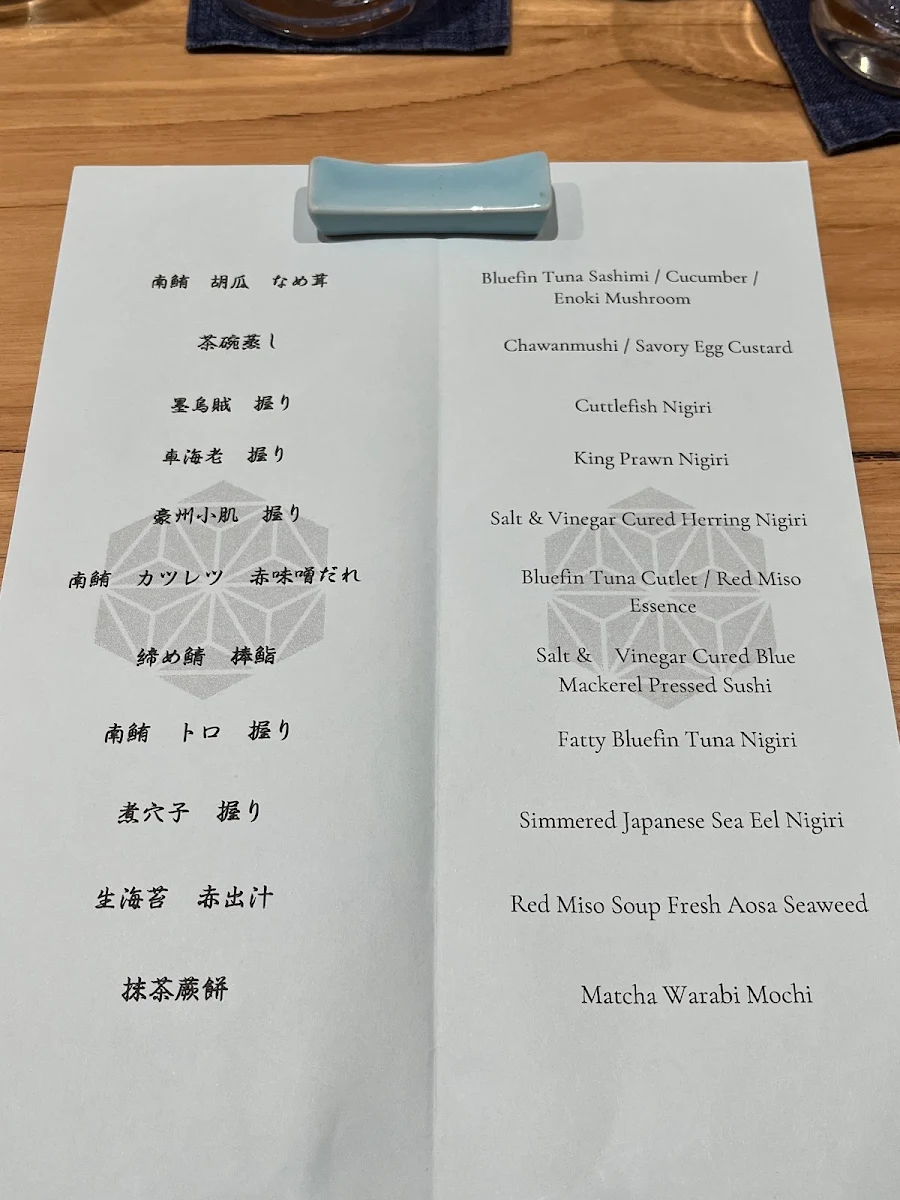 南鮪　胡瓜　なめ茸
茶碗蒸し
墨烏賊　握り
車海老　握り
豪州小肌　握り
南鮪　カツレツ　赤味噌だれ
締め鯖　棒鮨
南鮪　トロ　握り
煮穴子　握り
生海苔　赤出汁
抹茶蕨餅
Bluefin Tuna Sashimi / Cucumber /
Enoki Mushroom
Chawanmushi / Savory Egg Custard
Cuttlefish Nigiri
King Prawn Nigiri
Salt & Vinegar Cured Herring Nigiri
Bluefin Tuna Cutlet / Red Miso
Essence
Salt &　Vinegar Cured Blue
Mackerel Pressed Sushi
Fatty Bluefin Tuna Nigiri
Simmered Japanese Sea Eel Nigiri
Red Miso Soup Fresh Aosa Seaweed
Matcha Warabi Mochi